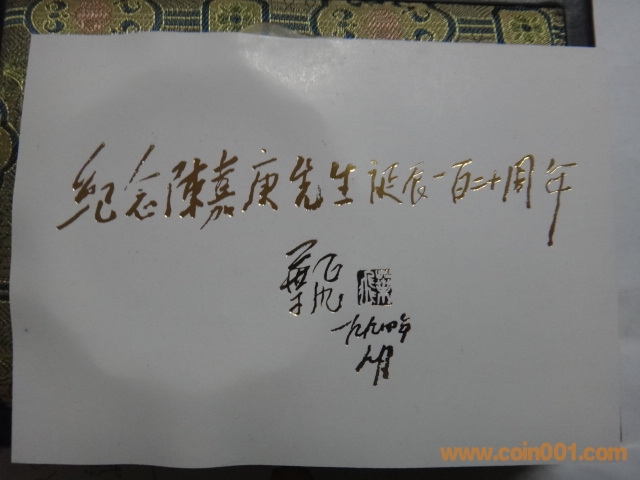 纪念陈嘉庚先生诞辰一百二十周年
叶飞
一九九四年
八月
www.coin001.com